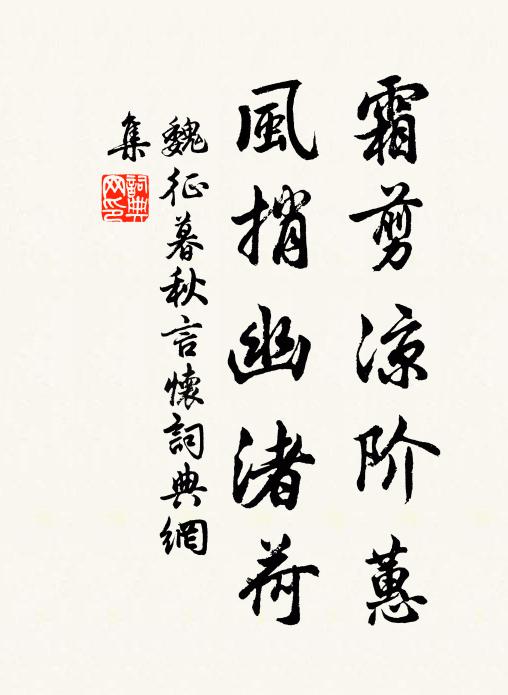 霜剪涼阶蕙
風捎幽渚荷
魏征暮秋言懷詞典網
集
詞典
网印